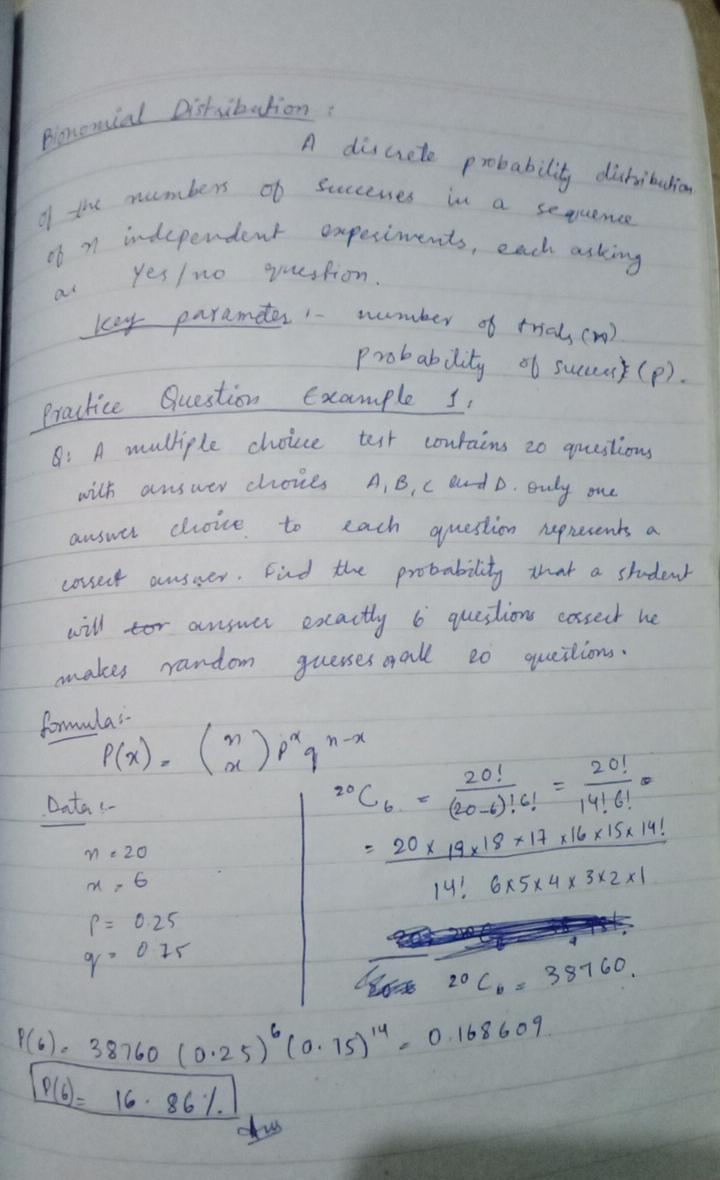 Bionomial Distribution :
A discrete probability distribution
of the numbers of successes in a sequence
of n independent experiments, each asking
a Yes/no question.
key parameter :- number of trials (n).
probability of success (p).
Practice Question Example 1:
Q: A multiple choice test contains 20 questions
with answer choices A, B, C and D. only one
answer choice to each question represents a
correct answer. Find the probability that a student
will answer exactly 6 questions correct he
makes random guesses all 20 questions.
formula:-
P(x) = (n x) p^x q^n-x
Data :-
n = 20
x = 6
p = 0.25
q = 0.75
20C6 = 20! / (20-6)! 6! = 20! / 14! 6! =
= 20 x 19 x 18 x 17 x 16 x 15 x 14! / 14! 6x5x4x3x2x1
20C6 = 38760.
P(6) = 38760 (0.25)^6 (0.75)^14 = 0.168609
P(6) = 16.86%.
Ans